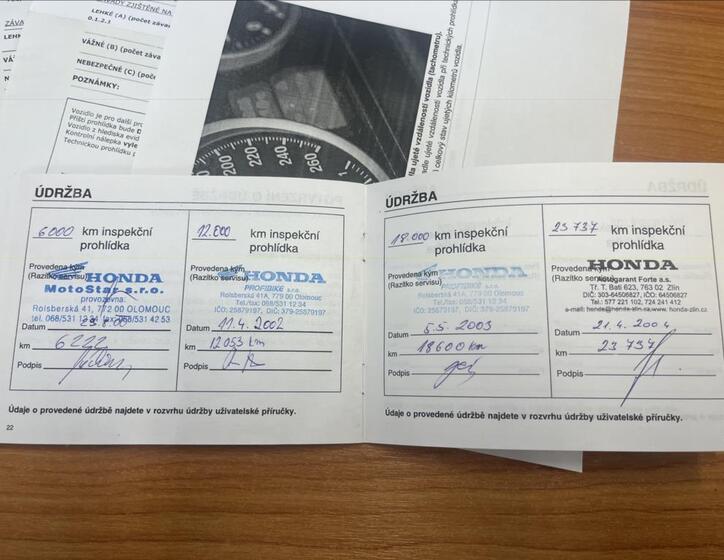 ZÁVADY ZJIŠTĚNÉ NA
LEHKÉ (A) (počet záva
0.1.2.1
VÁŽNÉ (B) (počet záva
NEBEZPEČNÉ (C) (poče
POZNÁMKY:
Vozidlo je pro další pr
Příští prohlídka bude D
Vozidlo z hlediska evid
Kontrolní nálepka vyle
Technickou prohlídku p
ZÁVA
LEHK
200
220
240
260
ujeté vzdálenosti vozidla (tachometru).
ujeté vzdálenosti vozidla při technických prohlídk
celkový stav ujetých kilometrů vozidla.
ÚDRŽBA
6000 km inspekční
prohlídka
Provedena kým
(Razítko servisu)
HONDA
MotoStar s.r.o.
provozovna:
Roisberská 41, 772 00 OLOMOUC
tel. 068/531 12 34 fax:068/531 42 53
Datum
km 6222
Podpis
12.000 km inspekční
prohlídka
Provedena kým
(Razítko servisu)
HONDA
PROFIBIKE s.r.o.
Roisberská 41A, 779 00 Olomouc
tel.: 068/531 12 34
IČO: 25879197, DIČ: 379-25879197
Datum 11.4. 2002
km 12053 km
Podpis
Údaje o provedené údržbě najdete v rozvrhu údržby uživatelské příručky.
22
ÚDRŽBA
18.000 km inspekční
prohlídka
Provedena kým
(Razítko servisu)
HONDA
PROFIBIKE s.r.o.
Roisberská 41A, 779 00 Olomouc
tel.: 068/531 12 34
IČO: 25879197, DIČ: 379-25879197
Datum 5.5. 2003
km 18600 km
Podpis
23 737 km inspekční
prohlídka
Provedena kým
(Razítko servisu)
HONDA
Autogarant Forte a.s.
Tř. T. Bati 623, 763 02 Zlín
DIČ: 303-64506827, IČO: 64506827
Tel.: 577 221 102, 724 241 412
e-mail: honda@honda-zlin.cz,www. honda-zlin.cz
Datum 21.4. 2004
km 23 737
Podpis
Údaje o provedené údržbě najdete v rozvrhu údržby uživatelské příručky.